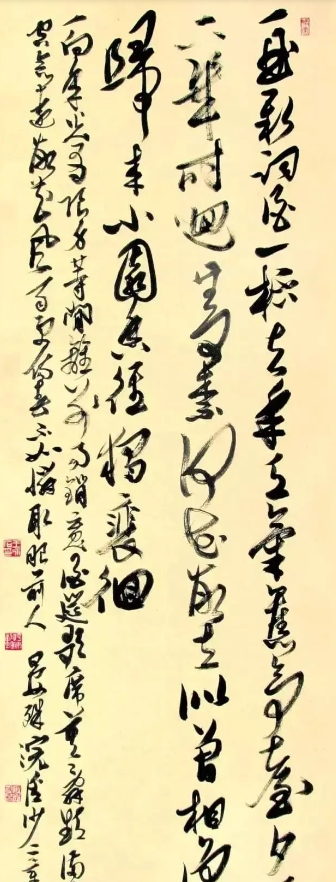 一曲新词酒一杯去年天气舊亭台夕
下幾时迴无可奈何花落去似曾相识
歸来小園香径獨裵徊
一向年光有限身等閒離别易銷魂酒筵歌席莫辞頻满
空念远落花风雨更伤春不如怜取眼前人 晏殊浣溪沙二章